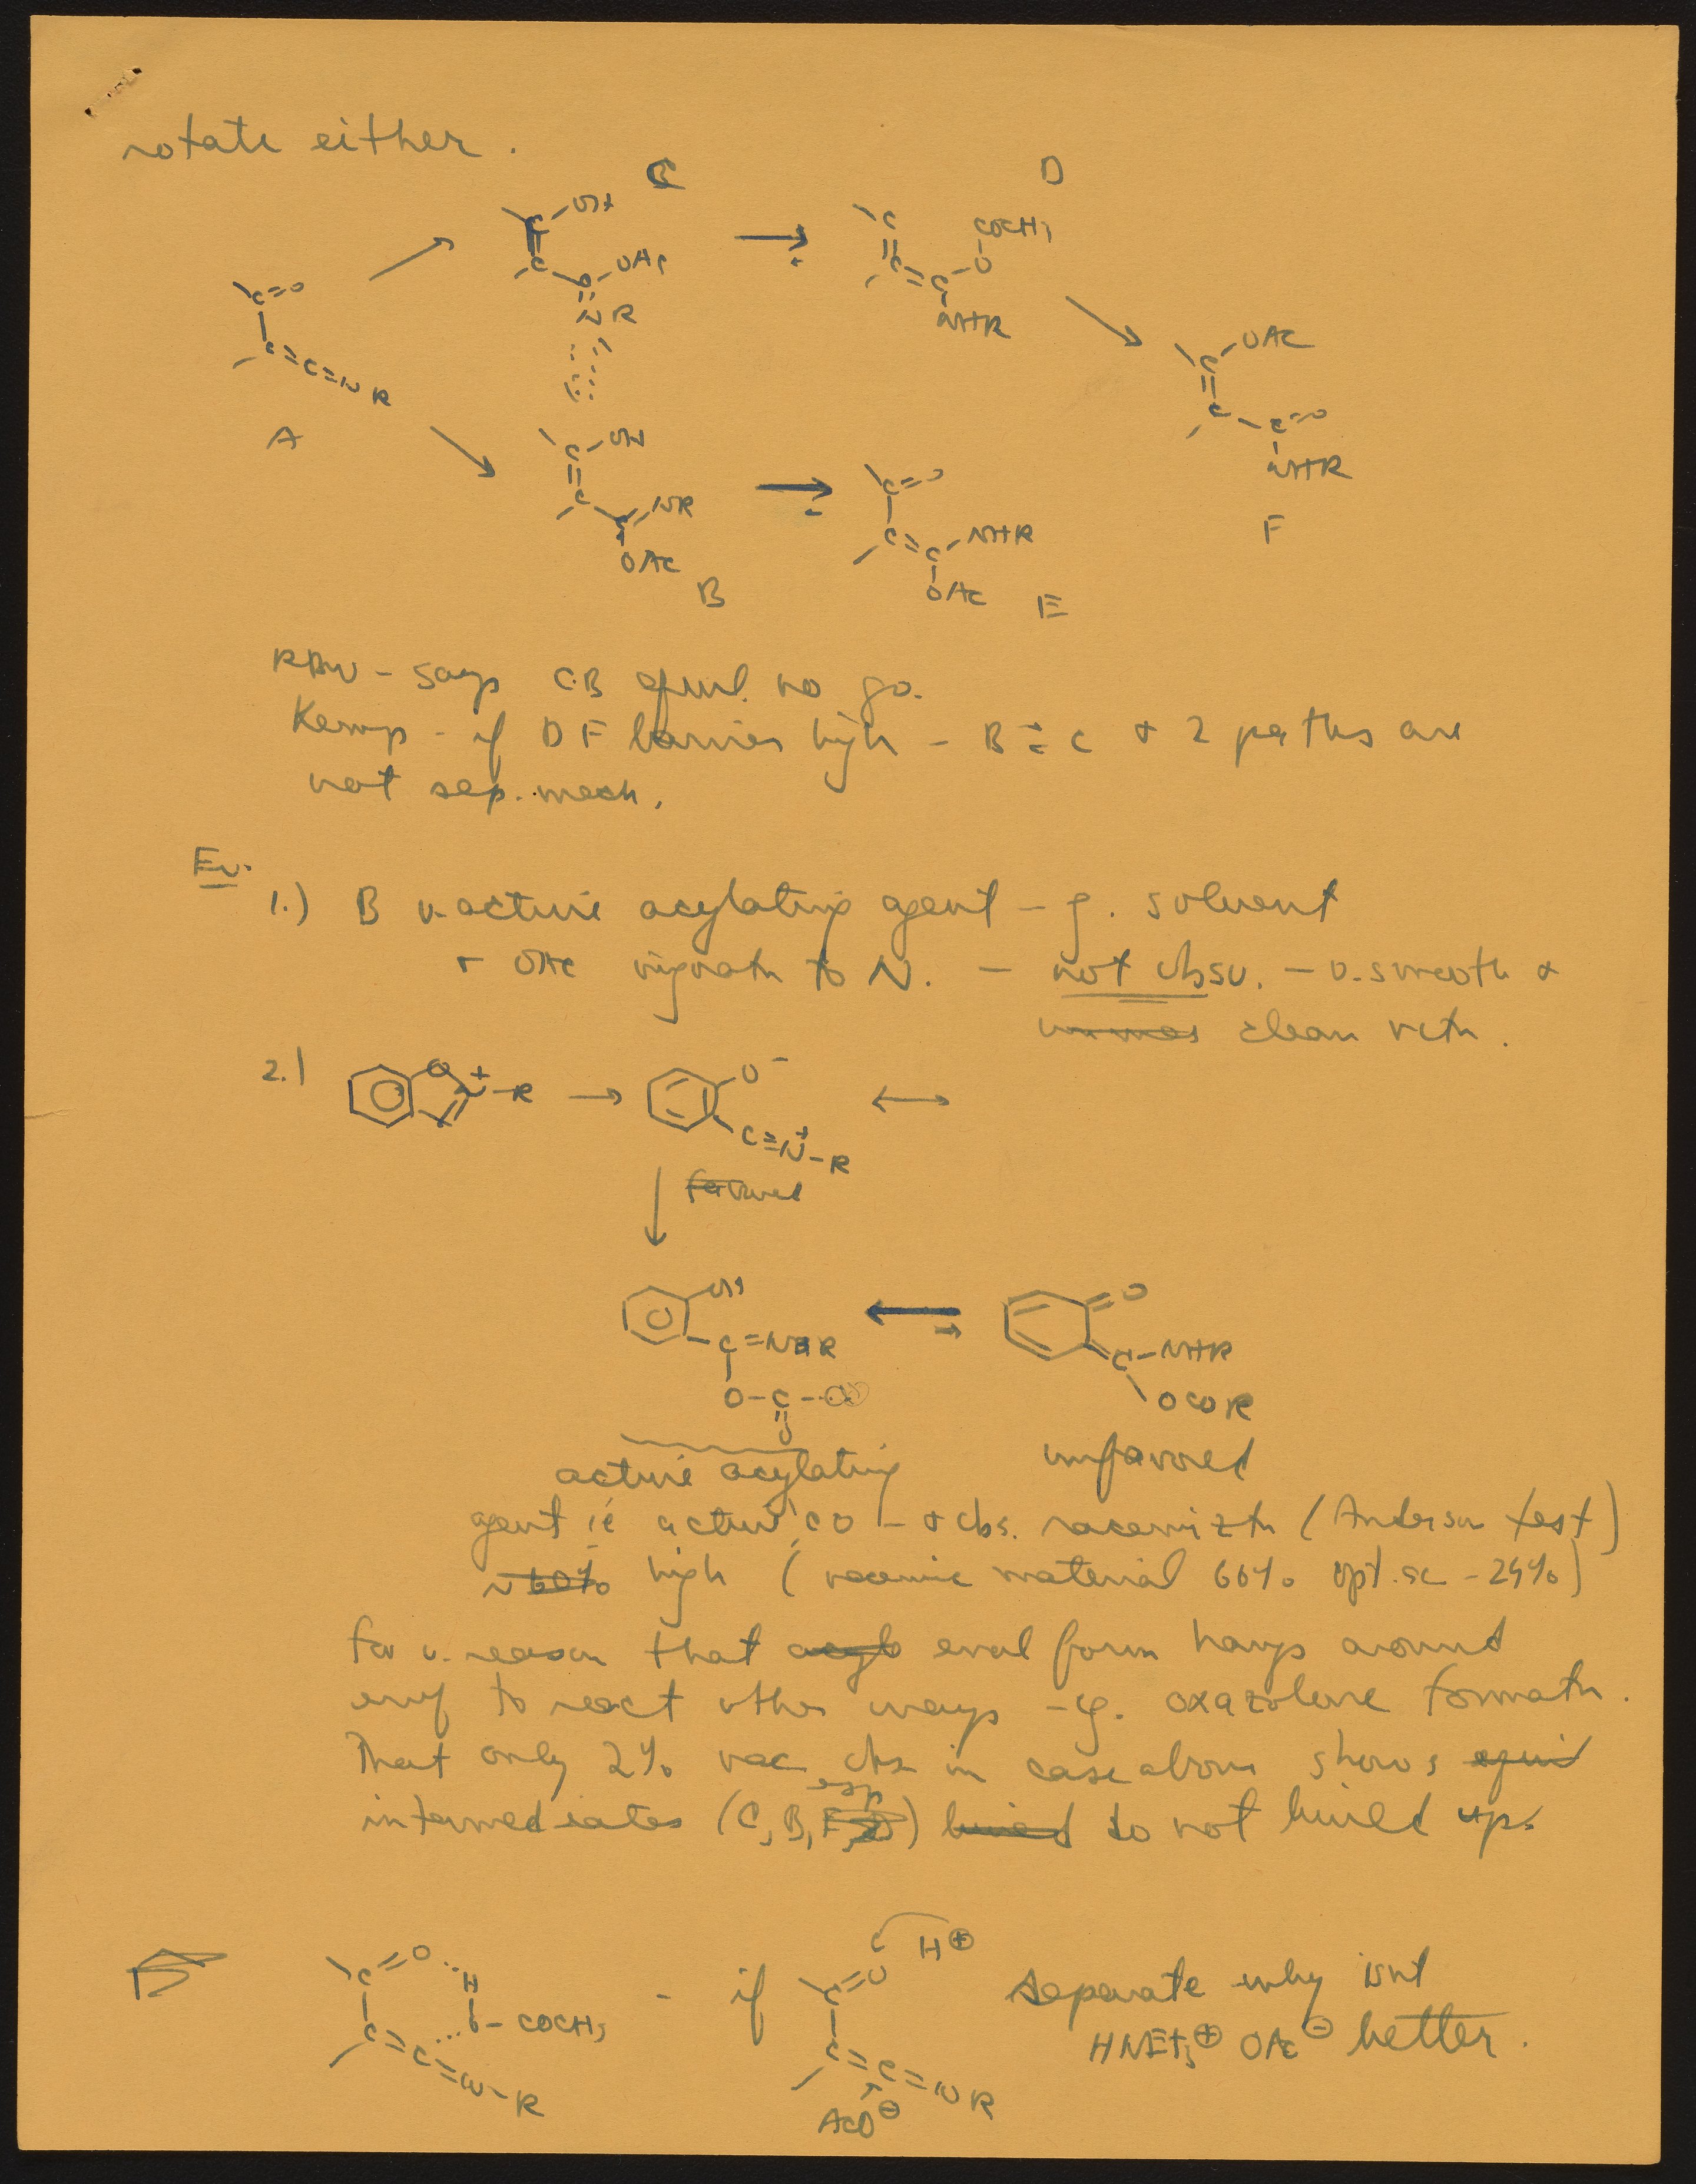 rotate either.
C
D
OH
C
C
OAc
C
NR
C
COCH3
C
C
O
NHR
C=O
C=C=NR
A
C
OAC
C
C=O
NHR
F
C
OH
C
C
NR
OAC
B
C=O
C=C
NHR
OAC
E
RBW - says C⋅B equil. no go.
Kemp - if DF barrier high - B ⇌ C + 2 paths are
not sep. mech.
Ev.
1.) B v. active acylating agent - eg. solvent
+ OAc migratn to N. - not obsv. - v. smooth +
clean rctn.
2.) O N+ - R → O- ↔
C≡N+-R
favored
OH
C=NR
O-C-
O
O
C-NHR
OCOR
active acylating
unfavored
agent ie active CO - + obs. racemiztn (Anderson test)
~60% high (racemic material 66% opt. ac - 24%)
for v. reason that enol form hangs around
enuf to react other ways - eg. oxazolone formatn.
That only 2% rac obs in case above shows equil
esp
intermediates (C, B, ) do not build up.
C=O
H
O-COCH3
C=C=N-R
- if
H⊕
C=O
C=C=NR
AcO⊖
Separate why isnt
HNEt3⊕ OAc⊖ better.